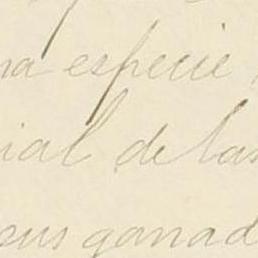 na especie
ial de las
sus ganad